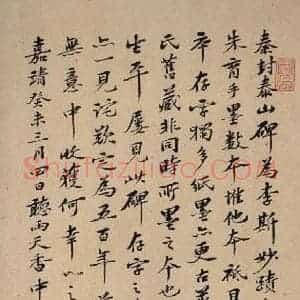 秦封泰山碑為李斯妙蹟
朱育手墨数本惟他本祇見
存字獨多紙墨亦更古
氏舊藏非同時所墨之本也
生平屡見此碑存字之
亦一見詫歎以為五百年前
無意中收獲何幸
嘉靖癸未三月四日聽雨天香中